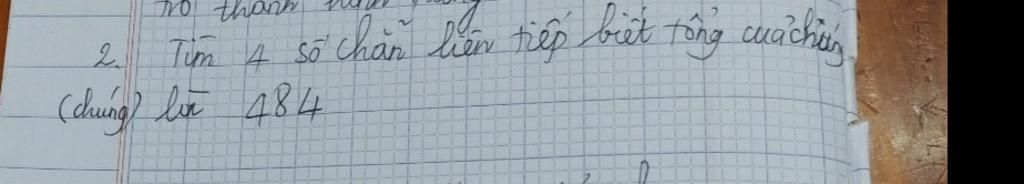 trở thành
2. Tìm 4 số chẵn liên tiếp biết tổng của chúng
(chúng) là 484